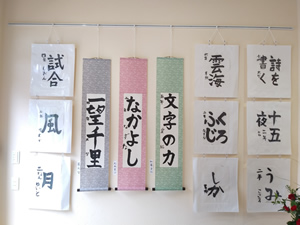 詩を
書く
十五
夜
うみ
文字の力
なかよし
一望千里
雲海
くろ
ふじ
しか
試合
風
月